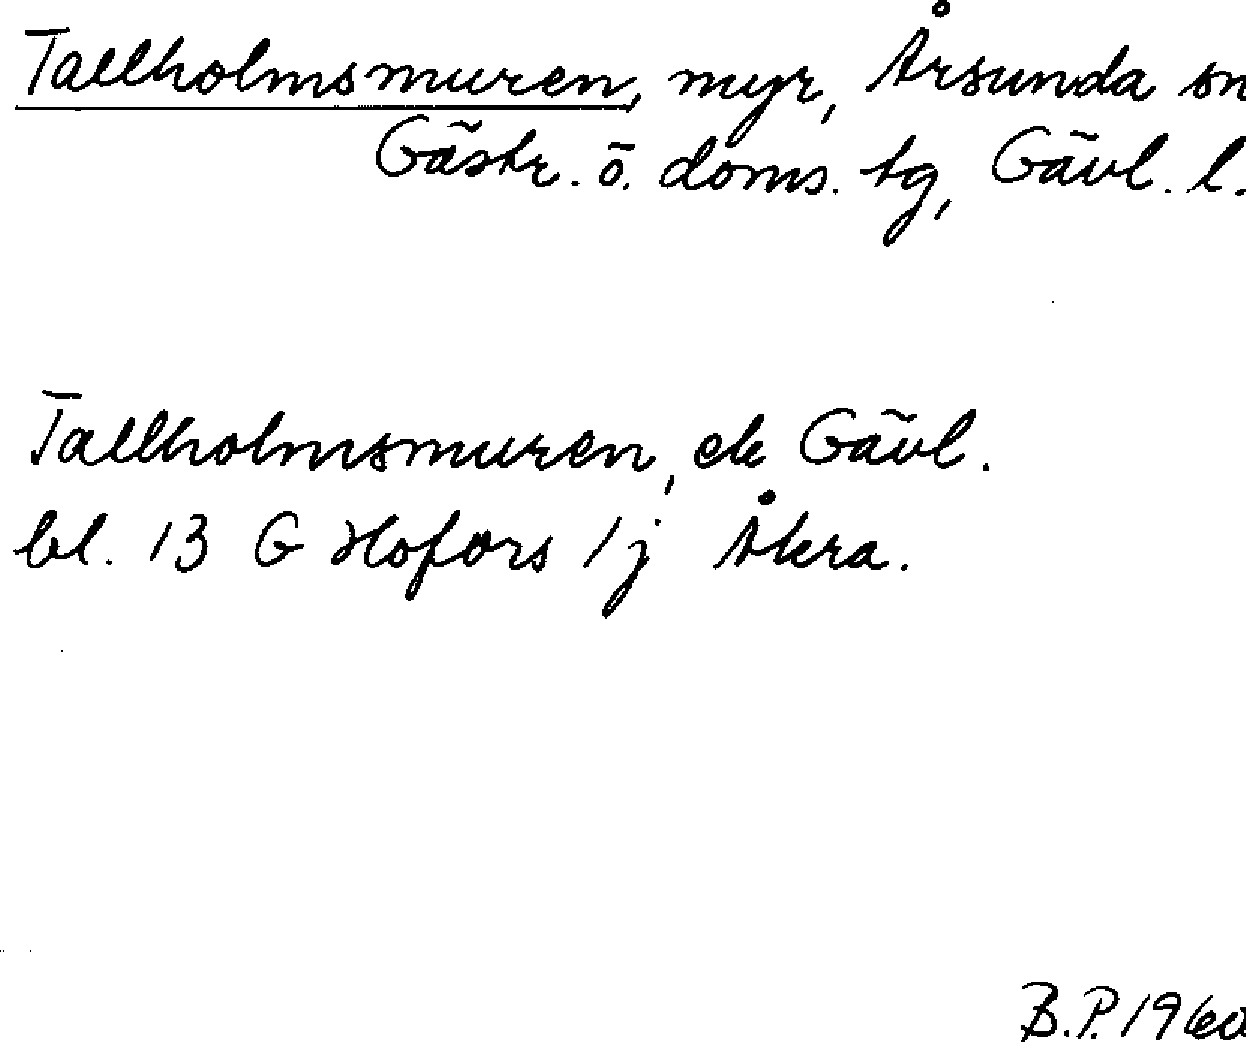 Tallholmsmuren, myr, Årsunda sn
Gästr. ö. doms. tg, Gävl. l.
Tallholmsmuren, ek Gävl.
bl. 13 G Hofors 1j Åkra.
B.P. 1960